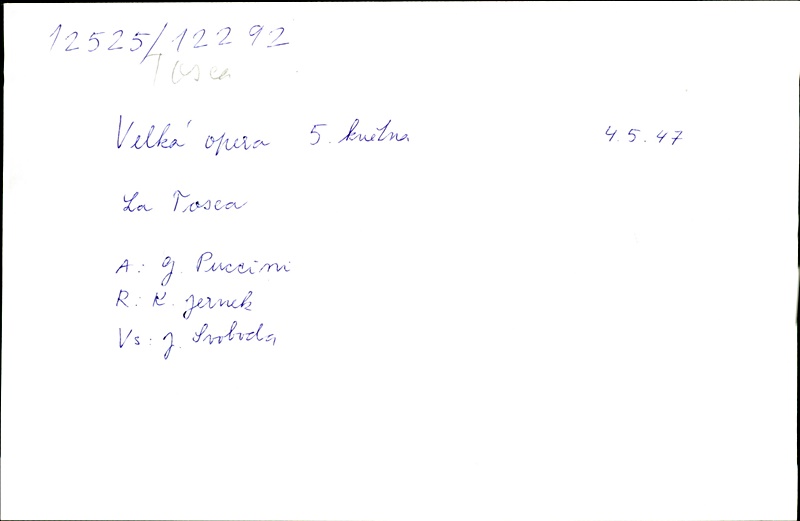 12525/12292
Tosca
Velká opera 5. května 4.5.47
La Tosca
A: G. Puccini
R: K. Jernek
Vs: J. Svoboda